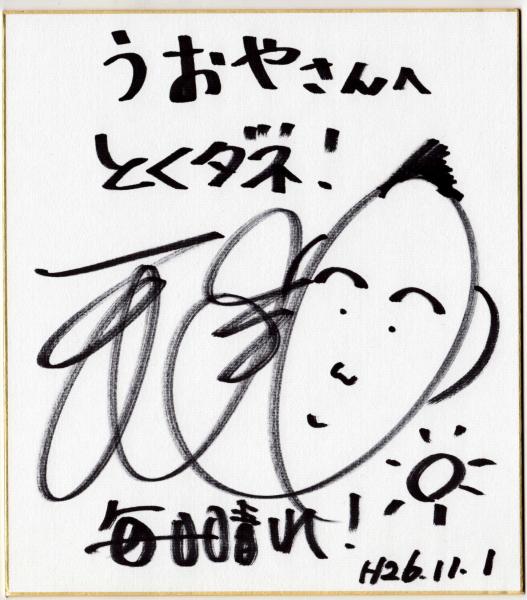 うおやさんへ
とくダネ！
毎日晴れ！
H26.11.1